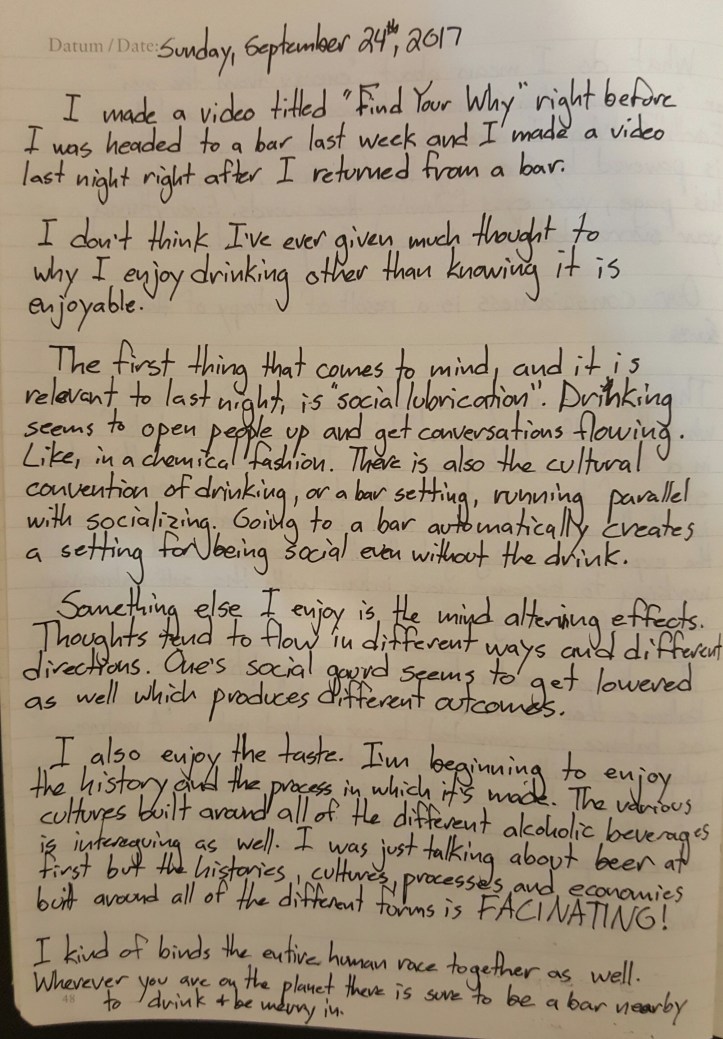 Datum / Date: Sunday, September 24th, 2017
I made a video titled "Find Your Why" right before
I was headed to a bar last week and I made a video
last night right after I returned from a bar.
I don't think I've ever given much thought to
why I enjoy drinking other than knowing it is
enjoyable.
The first thing that comes to mind, and it is
relevant to last night, is "social lubrication". Drinking
seems to open people up and get conversations flowing.
Like, in a chemical fashion. There is also the cultural
convention of drinking, or a bar setting, running parallel
with socializing. Going to a bar automatically creates
a setting for being social even without the drink.
Something else I enjoy is the mind altering effects.
Thoughts tend to flow in different ways and different
directions. One's social gaurd seems to get lowered
as well which produces different outcomes.
I also enjoy the taste. I'm beginning to enjoy
the history and the process in which it's made. The various
cultures built around all of the different alcoholic beverages
is intereguing as well. I was just talking about beer at
first but the histories, cultures, processes, and economies
built around all of the different forms is FACINATING!
I kind of binds the entire human race together as well.
Wherever you are on the planet there is sure to be a bar nearby
48 to drink + be merry in.